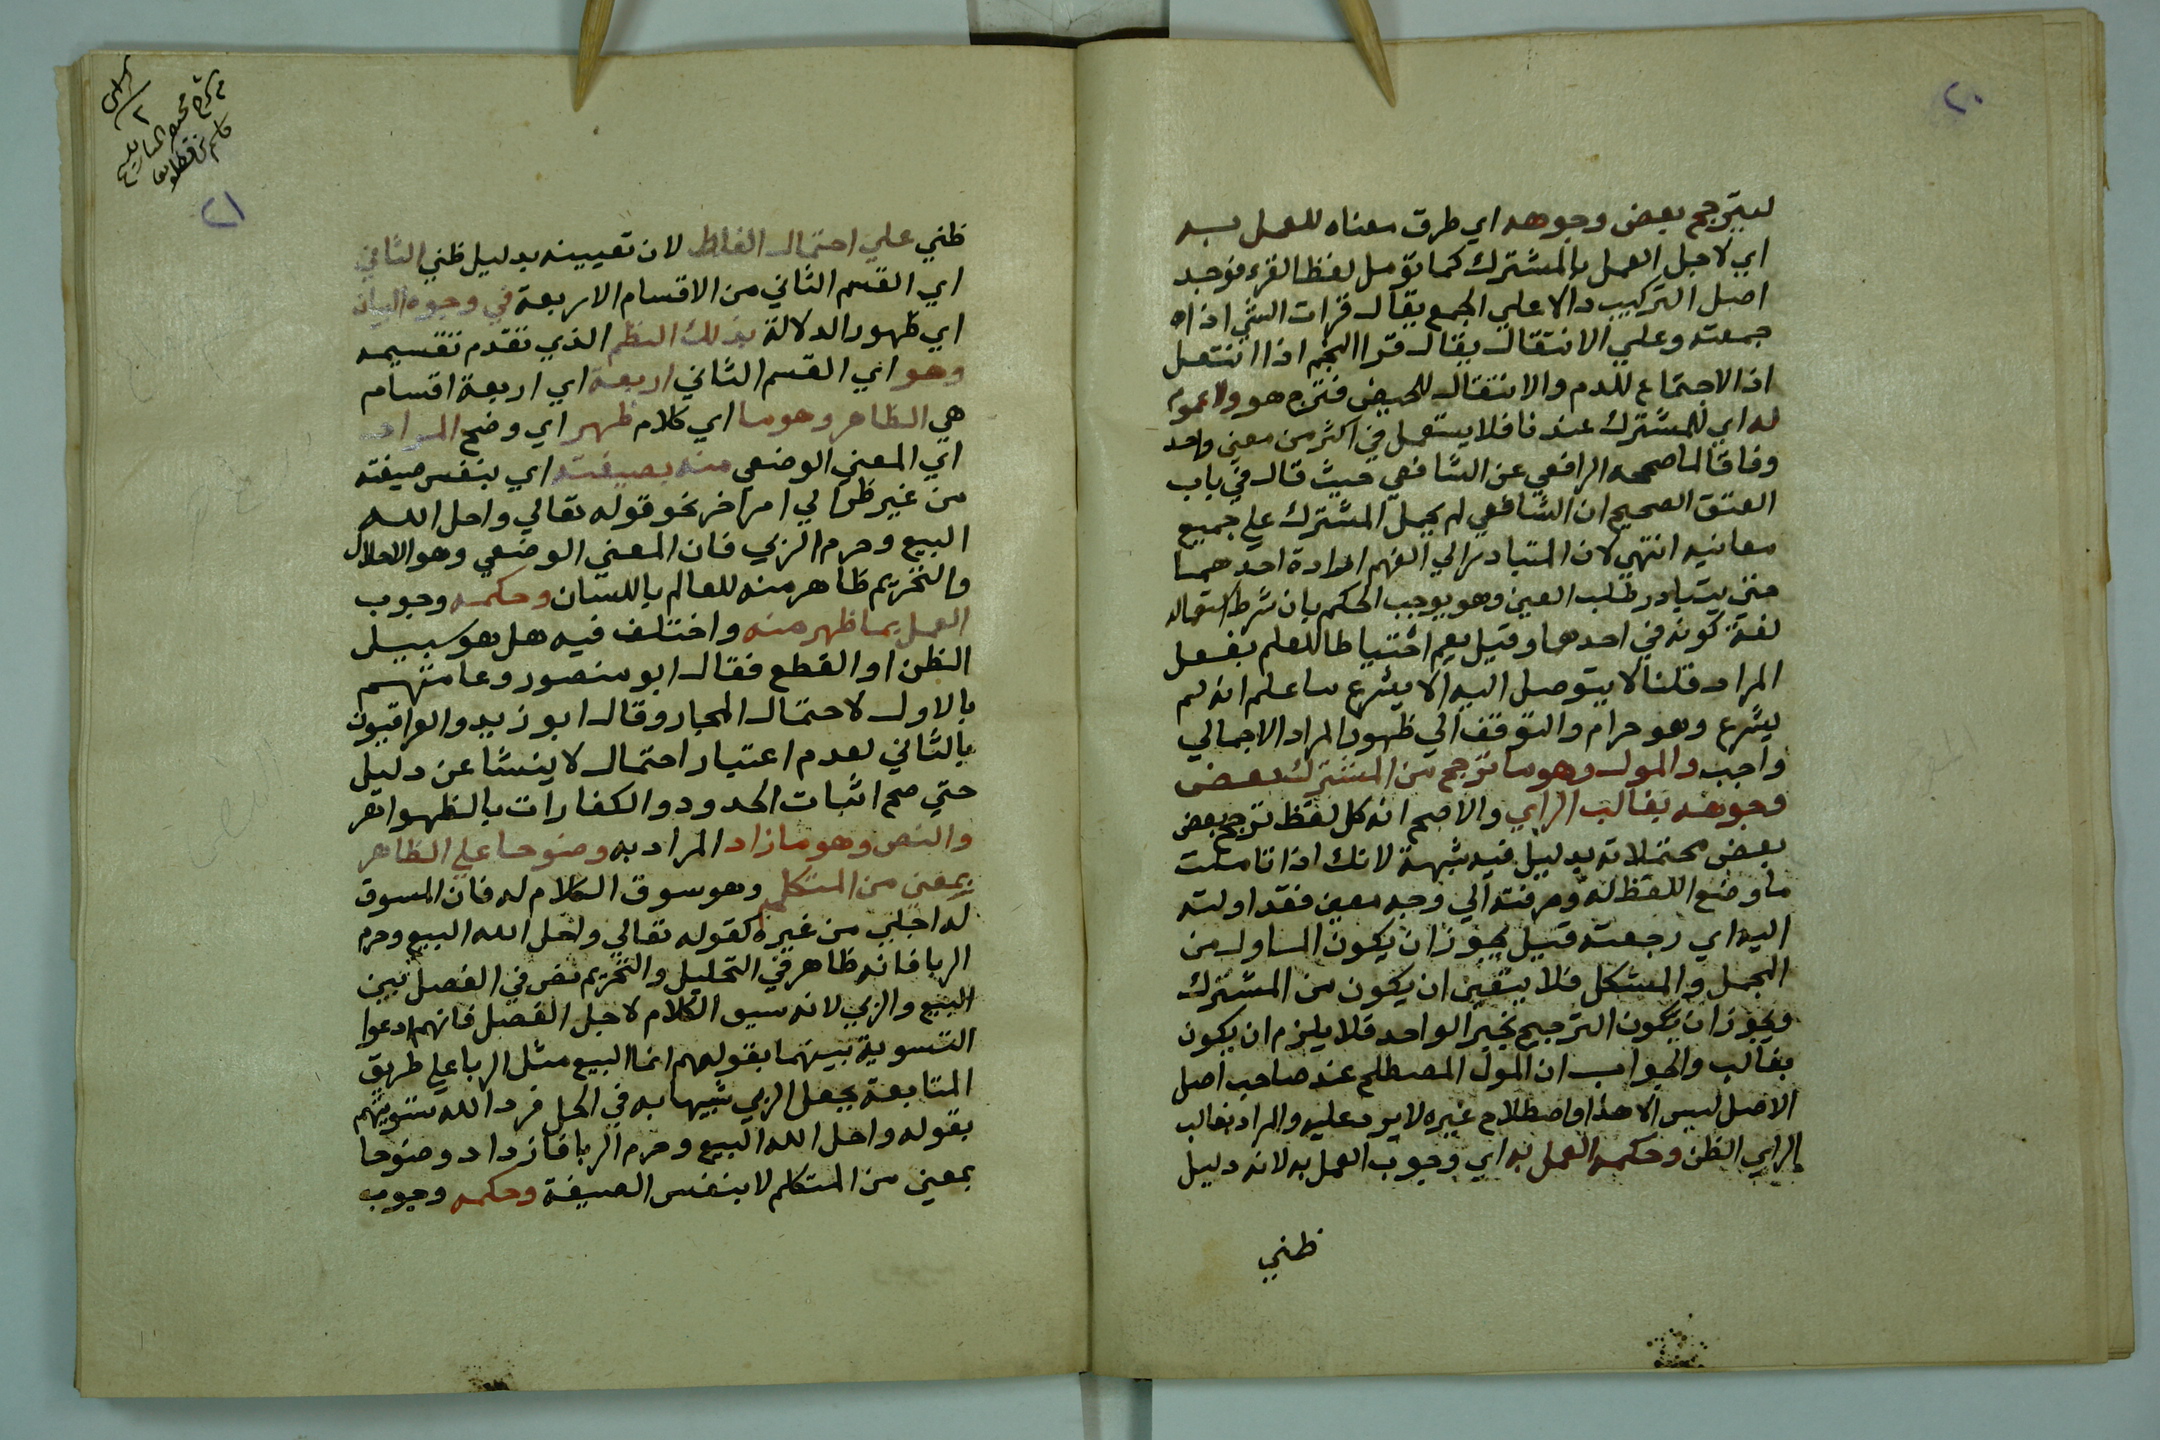 ٢٠
ليترجح بعض وجوهه اي طرق معناه للعمل به
اي لاجل العمل بالمشترك كما تؤمل لفظ القرء فوجد
اصل التركيب دالا علي الجمع يقال قرات الشي اذا
جمعته وعلي الانتقال يقال قرا النجم اذا انتقل
اذ الاجتماع للدم والانتقال للحيض فترجح هو ولا عموم
له اي للمشترك عندنا فلا يستعمل في اكثر من معني واحد
وفاقا لما صححه الرافعي عن الشافعي حيث قال في باب
العتق الصحيح ان الشافعي لم يحمل المشترك علي جميع
معانيه انتهي لان المتبادر الي الفهم ارادة احدهما
حتي يتبادر طلب العين وهو يوجب الحكم بان شرط استعماله
لغة كونه في احدهما وقيل يعم احتياطا للعلم بفعل
المراد قلنا لا يتوصل اليه الا بشرع ما علم انه لم
يشرع وهو حرام والتوقف الي ظهور المراد الاجمالي
واجب والمول وهو ما ترجح من المشترك بعض
وجوهه بغالب الراي والاصح انه كل لفظ ترجح بعض
بعض محتملاته بدليل فيه شبهة لانك اذا تاملت
ما وضع اللفظ له وصرفته الي وجه معين فقد اولته
اليه اي رجعته قيل يجوز ان يكون الماول من
المجمل والمشكل فلا يتعين ان يكون من المشترك
ويجوز ان يكون الترجيح بخبر الواحد فلا يلزم ان يكون
بغالب والجواب ان المول المصطلح عند صاحب اصل
الاصل ليس الا هذا واصطلاح غيره لا يرد عليه والمراد بغالب
الراي الظن وحكمه العمل به اي وجوب العمل به لانه دليل
ظني
٢١
ظني علي احتمال الغلط لان تعيينه بدليل ظني الثاني
اي القسم الثاني من الاقسام الاربعة في وجوه البيان
اي ظهور الدلالة بذلك النظم الذي تقدم تقسيمه
وهو اي القسم الثاني اربعة اي اربعة اقسام
هي الظاهر وهو ما اي كلام ظهر اي وضح المراد
اي المعني الوضعي منه بصيغته اي بنفس صيغته
من غير نظر الي امر اخر نحو قوله تعالي واحل الله
البيع وحرم الربي فان المعني الوضعي وهو الاحلال
والتحريم ظاهر منه للعالم باللسان وحكمه وجوب
العمل بما ظهر منه واختلف فيه هل هو سبيل
الظن او القطع فقال ابو منصور وعامتهم
بالاول لاحتمال المجاز وقال ابو زيد والعراقيون
بالثاني لعدم اعتبار احتمال لا ينشا عن دليل
حتي صح اثبات الحدود والكفارات بالظهواهر
والنص وهو ما زاد المراد به وضوحا علي الظاهر
بمعني من المتكلم وهو سوق الكلام له فان المسوق
له اجلي من غيره كقوله تعالي واحل الله البيع وحرم
الربا فانه ظاهر في التحليل والتحريم نص في الفصل بين
البيع والربي لانه سيق الكلام لاجل الفصل فانهم ادعوا
التسوية بينهما بقولهم انما البيع مثل الربا علي طريق
المتابعة بجعل الربي شبيها به في الحل فرد الله تسويتهم
بقوله واحل الله البيع وحرم الربا فازداد وضوحا
بمعني من المتكلم لا بنفس الصيغة وحكمه وجوب